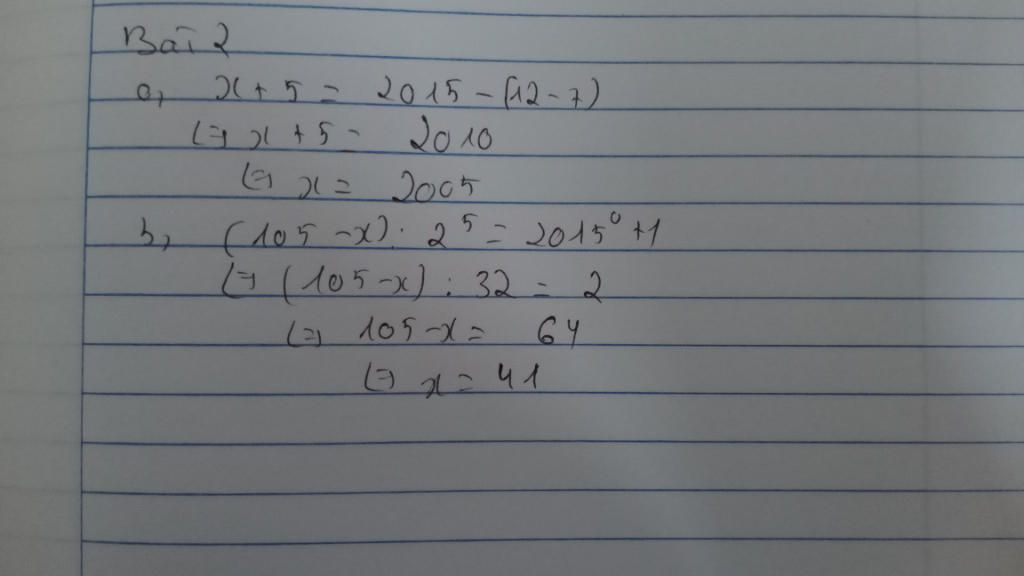 Bài 2
a, x + 5 = 2015 - (12 - 7)
(=) x + 5 = 2010
(=) x = 2005
b, (105 - x) : 2⁵ = 2015⁰ + 1
(=) (105 - x) : 32 = 2
(=) 105 - x = 64
(=) x = 41